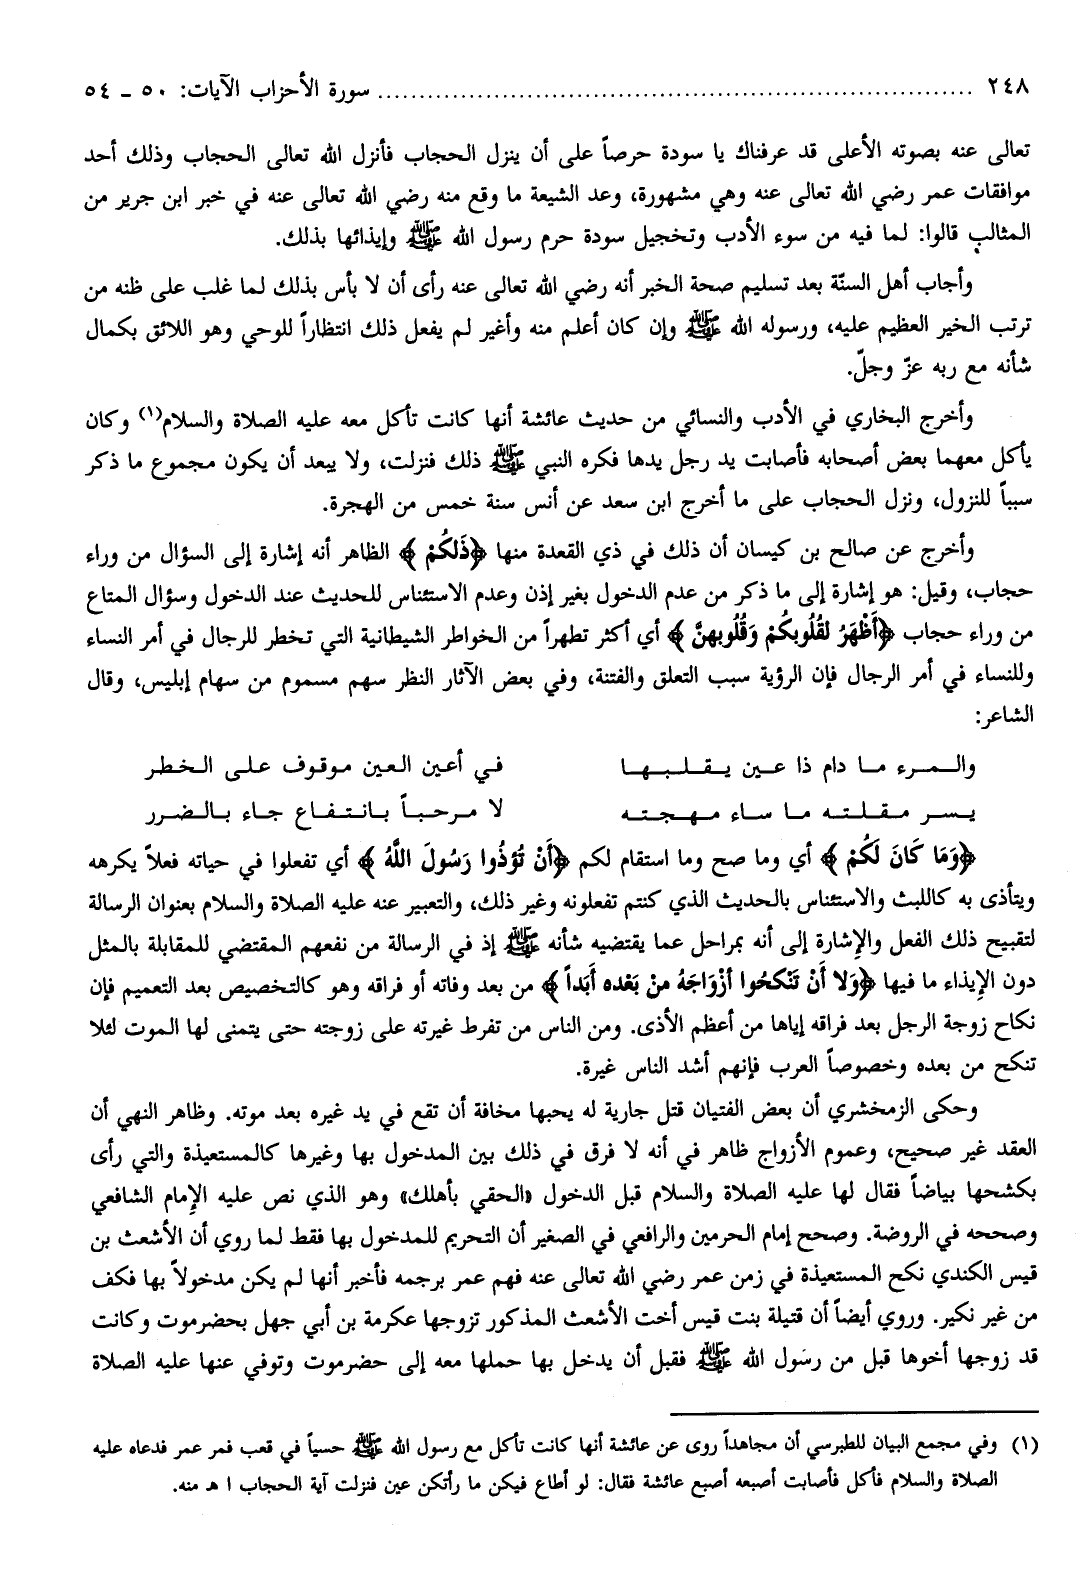 ٢٤٨ ........................................................................ سورة الأحزاب الآيات: ٥٠ ـ ٥٤
تعالى عنه بصوته الأعلى قد عرفناك يا سودة حرصاً على أن ينزل الحجاب فأنزل الله تعالى الحجاب وذلك أحد
موافقات عمر رضي الله تعالى عنه وهي مشهورة، وعد الشيعة ما وقع منه رضي الله تعالى عنه في خبر ابن جرير من
المثالب قالوا: لما فيه من سوء الأدب وتخجيل سودة حرم رسول الله ﷺ وإيذائها بذلك.
وأجاب أهل السنّة بعد تسليم صحة الخبر أنه رضي الله تعالى عنه رأى أن لا بأس بذلك لما غلب على ظنه من
ترتب الخير العظيم عليه، ورسوله الله ﷺ وإن كان أعلم منه وأغير لم يفعل ذلك انتظاراً للوحي وهو اللائق بكمال
شأنه مع ربه عزّ وجلّ.
وأخرج البخاري في الأدب والنسائي من حديث عائشة أنها كانت تأكل معه عليه الصلاة والسلام(١) وكان
يأكل معهما بعض أصحابه فأصابت يد رجل يدها فكره النبي ﷺ ذلك فنزلت، ولا يبعد أن يكون مجموع ما ذكر
سبباً للنزول، ونزل الحجاب على ما أخرج ابن سعد عن أنس سنة خمس من الهجرة.
وأخرج عن صالح بن كيسان أن ذلك في ذي القعدة منها ﴿ذَلكُمْ﴾ الظاهر أنه إشارة إلى السؤال من وراء
حجاب، وقيل: هو إشارة إلى ما ذكر من عدم الدخول بغير إذن وعدم الاستئناس للحديث عند الدخول وسؤال المتاع
من وراء حجاب ﴿أَطْهَرُ لقُلُوبكُمْ وَقُلُوبهنَّ﴾ أي أكثر تطهراً من الخواطر الشيطانية التي تخطر للرجال في أمر النساء
وللنساء في أمر الرجال فإن الرؤية سبب التعلق والفتنة، وفي بعض الآثار النظر سهم مسموم من سهام إبليس، وقال
الشاعر:
والمرء ما دام ذا عين يقلبها في أعين العين موقوف على الخطر
يسر مقلته ما ساء مهجته لا مرحباً بانتفاع جاء بالضرر
﴿وَمَا كَانَ لَكُمْ﴾ أي وما صح وما استقام لكم ﴿أَنْ تُؤذُوا رَسُولَ اللَّهُ﴾ أي تفعلوا في حياته فعلاً يكرهه
ويتأذى به كاللبث والاستئناس بالحديث الذي كنتم تفعلونه وغير ذلك، والتعبير عنه عليه الصلاة والسلام بعنوان الرسالة
لتقبيح ذلك الفعل والإشارة إلى أنه بمراحل عما يقتضيه شأنه ﷺ إذ في الرسالة من نفعهم المقتضي للمقابلة بالمثل
دون الإيذاء ما فيها ﴿وَلا أَنْ تَنْكحُوا أزْوَاجَهُ منْ بَعْده أَبَداً﴾ من بعد وفاته أو فراقه وهو كالتخصيص بعد التعميم فإن
نكاح زوجة الرجل بعد فراقه إياها من أعظم الأذى. ومن الناس من تفرط غيرته على زوجته حتى يتمنى لها الموت لئلا
تنكح من بعده وخصوصاً العرب فإنهم أشد الناس غيرة.
وحكى الزمخشري أن بعض الفتيان قتل جارية له يحبها مخافة أن تقع في يد غيره بعد موته. وظاهر النهي أن
العقد غير صحيح، وعموم الأزواج ظاهر في أنه لا فرق في ذلك بين المدخول بها وغيرها كالمستعيذة والتي رأى
بكشحها بياضاً فقال لها عليه الصلاة والسلام قبل الدخول «الحقي بأهلك» وهو الذي نص عليه الإمام الشافعي
وصححه في الروضة. وصحح إمام الحرمين والرافعي في الصغير أن التحريم للمدخول بها فقط لما روي أن الأشعث بن
قيس الكندي نكح المستعيذة في زمن عمر رضي الله تعالى عنه فهم عمر برجمه فأخبر أنها لم يكن مدخولاً بها فكف
من غير نكير. وروي أيضاً أن قتيلة بنت قيس أخت الأشعث المذكور تزوجها عكرمة بن أبي جهل بحضرموت وكانت
قد زوجها أخوها قبل من رسول الله ﷺ فقبل أن يدخل بها حملها معه إلى حضرموت وتوفي عنها عليه الصلاة
(١) وفي مجمع البيان للطبرسي أن مجاهداً روى عن عائشة أنها كانت تأكل مع رسول الله ﷺ حسياً في قعب فمر عمر فدعاه عليه
الصلاة والسلام فأكل فأصابت أصبعه أصبع عائشة فقال: لو أطاع فيكن ما رأتكن عين فنزلت آية الحجاب ا هـ منه.